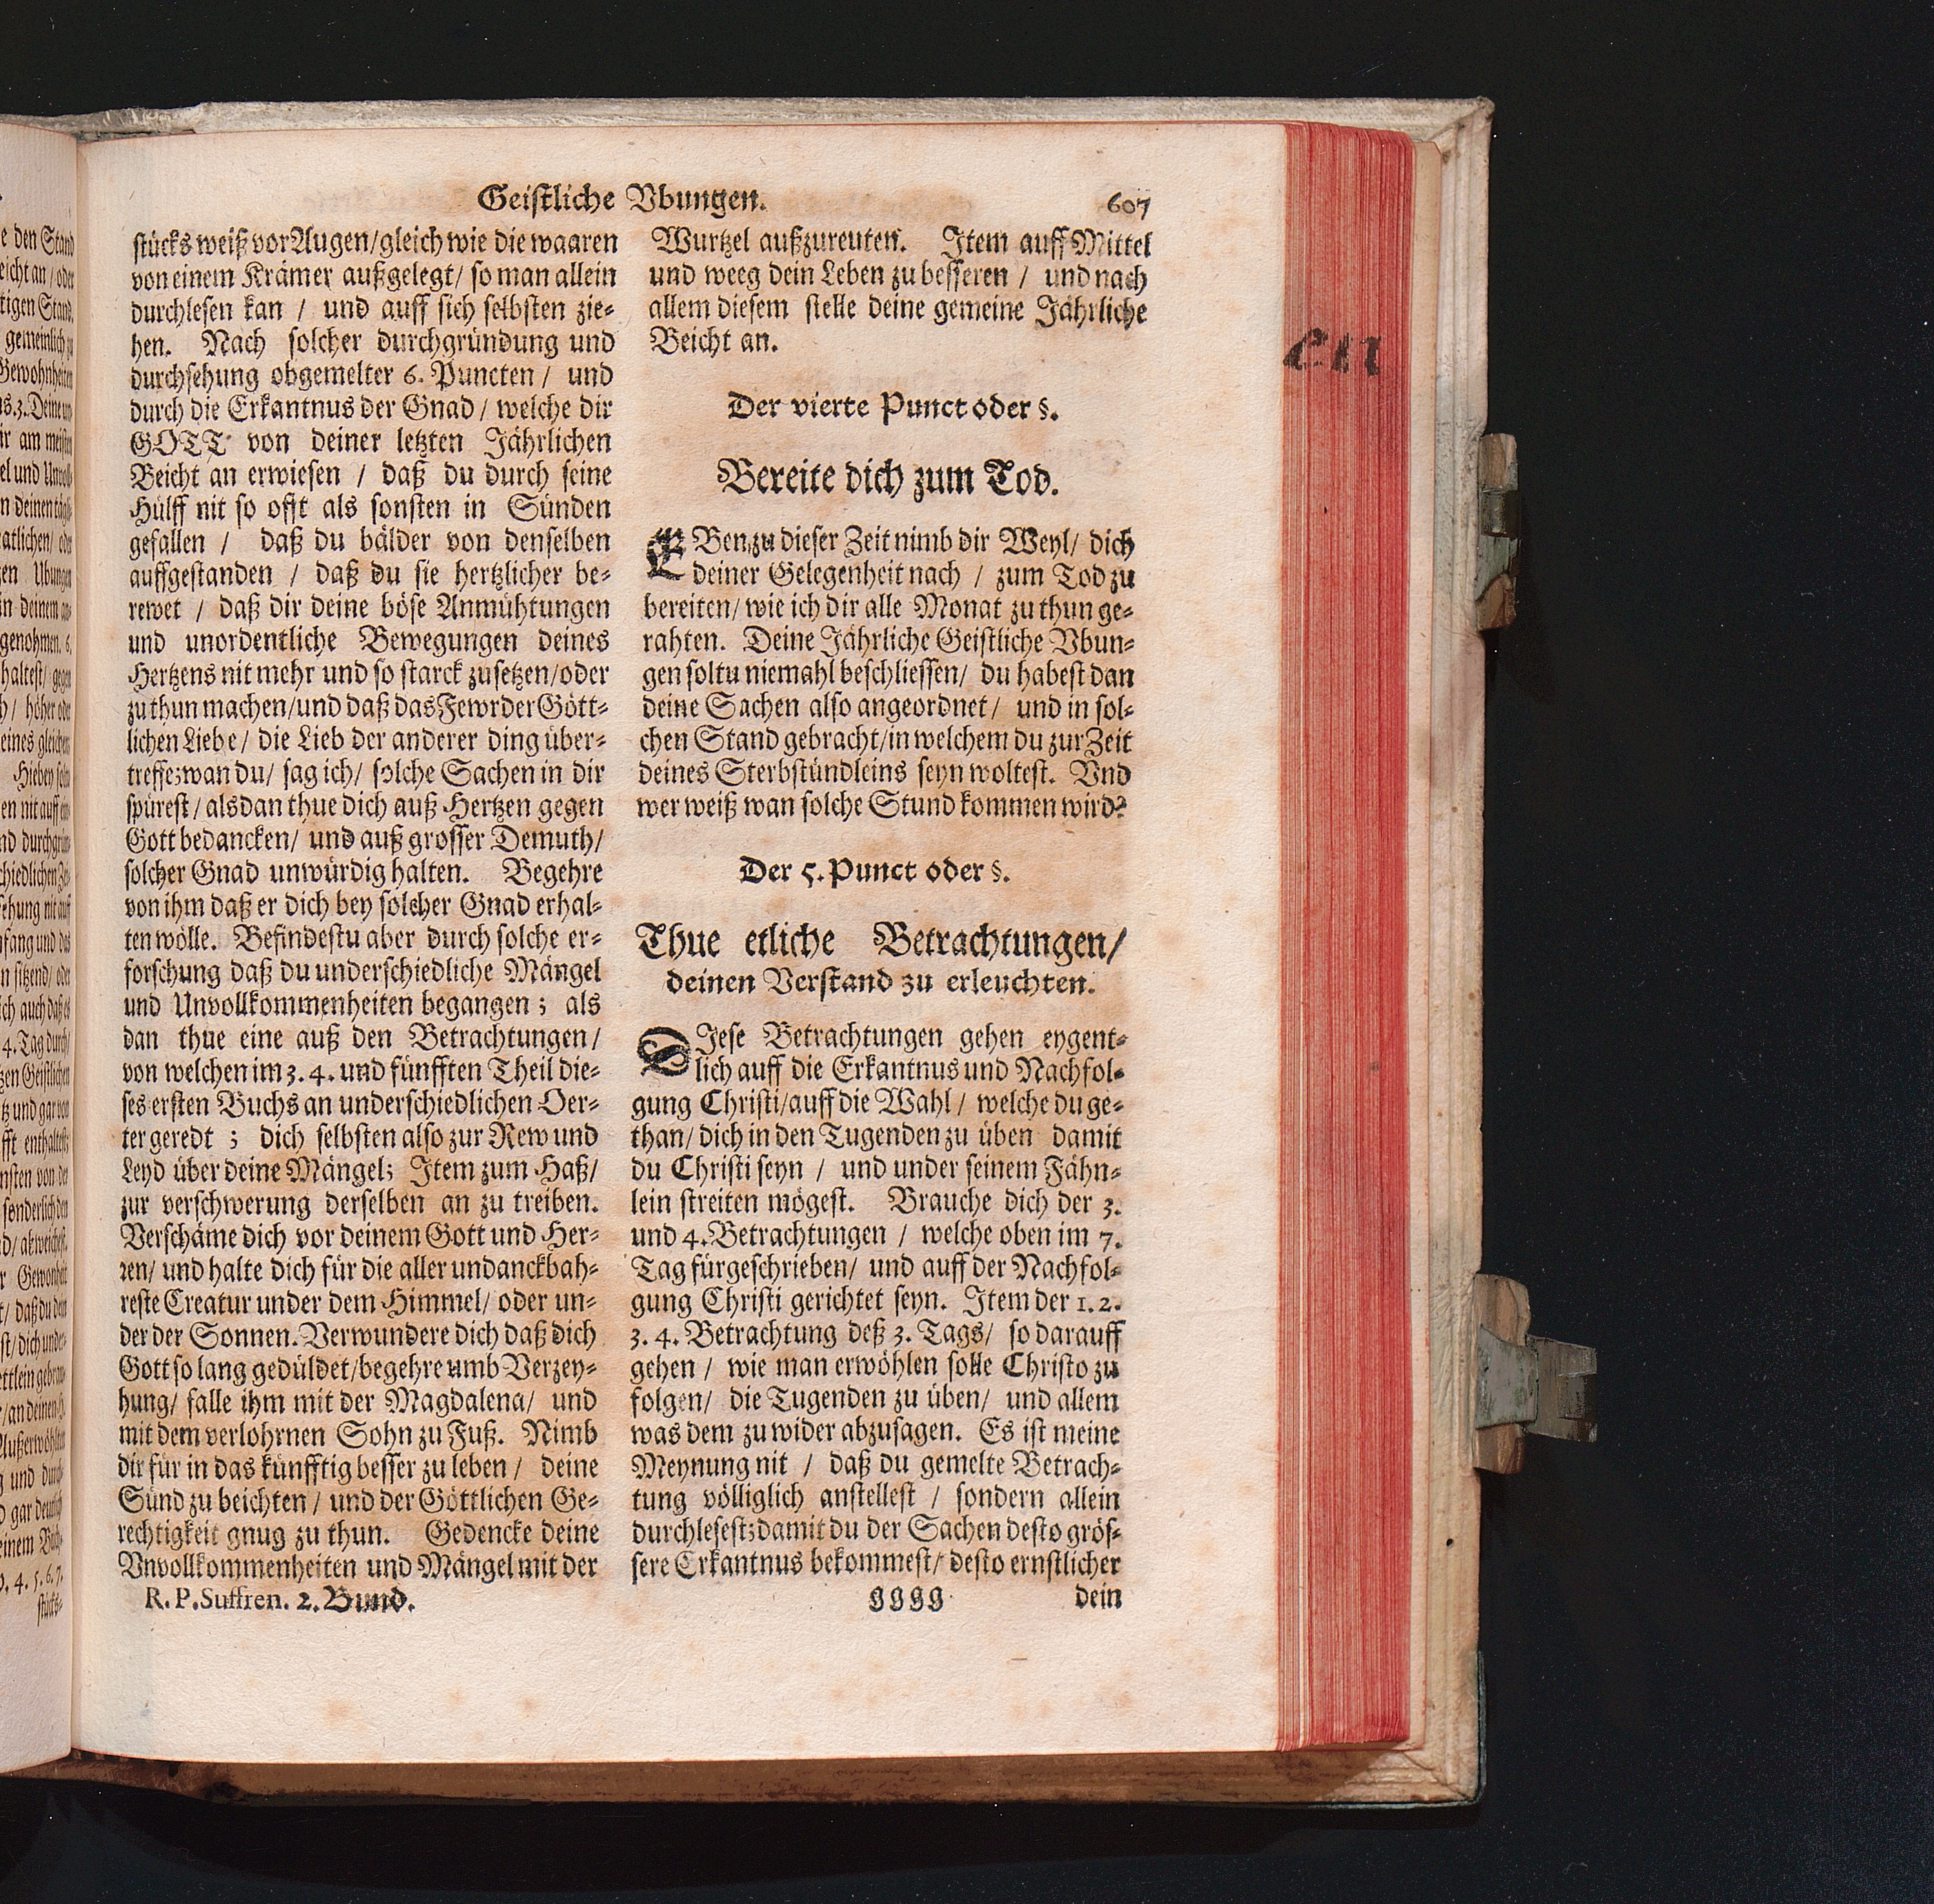 Geistliche Vbungen.
607
stücks weiß vor Augen/gleich wie die waaren
von einem Krämer außgelegt/ so man allein
durchlesen kan / und auff sich selbsten zie-
hen. Nach solcher durchgründung und
durchsehung obgemelter 6. Puncten / und
durch die Erkantnus der Gnad / welche dir
GOTT von deiner letzten Jährlichen
Beicht an erwiesen / daß du durch seine
Hülff nit so offt als sonsten in Sünden
gefallen / daß du bälder von denselben
auffgestanden / daß du sie hertzlicher be-
rewet / daß dir deine böse Anmühtungen
und unordentliche Bewegungen deines
Hertzens nit mehr und so starck zusetzen/oder
zu thun machen/und daß das Fewr der Gött-
lichen Liebe/ die Lieb der anderer ding über-
treffe; wan du/ sag ich/ solche Sachen in dir
spürest/ alsdan thue dich auß Hertzen gegen
Gott bedancken/ und auß grosser Demuth/
solcher Gnad unwürdig halten. Begehre
von ihm daß er dich bey solcher Gnad erhal-
ten wölle. Befindestu aber durch solche er-
forschung daß du underschiedliche Mängel
und Unvollkommenheiten begangen ; als
dan thue eine auß den Betrachtungen/
von welchen im 3. 4. und fünfften Theil die-
ses ersten Buchs an underschiedlichen Oer-
ter geredt ; dich selbsten also zur Rew und
Leyd über deine Mängel; Item zum Haß/
zur verschwerung derselben an zu treiben.
Verschäme dich vor deinem Gott und Her-
ren/ und halte dich für die aller undanckbah-
reste Creatur under dem Himmel/ oder un-
der der Sonnen. Verwundere dich daß dich
Gott so lang gedüldet/begehre umb Verzey-
hung/ falle ihm mit der Magdalena/ und
mit dem verlohrnen Sohn zu Fuß. Nimb
dir für in das künfftig besser zu leben / deine
Sünd zu beichten / und der Göttlichen Ge-
rechtigkeit gnug zu thun. Gedencke deine
Vnvollkommenheiten und Mängel mit der
R. P. Suffren. 2. Bund.
Wurtzel außzureuten. Item auff Mittel
und weeg dein Leben zu besseren / und nach
allem diesem stelle deine gemeine Jährliche
Beicht an.
Der vierte Punct oder §.
Bereite dich zum Tod.
EBen zu dieser Zeit nimb dir Weyl/ dich
deiner Gelegenheit nach / zum Tod zu
bereiten/ wie ich dir alle Monat zu thun ge-
rahten. Deine Jährliche Geistliche Vbun-
gen soltu niemahl beschliessen/ du habest dan
deine Sachen also angeordnet/ und in sol-
chen Stand gebracht/in welchem du zur Zeit
deines Sterbstündleins seyn woltest. Vnd
wer weiß wan solche Stund kommen wird?
Der 5. Punct oder §.
Thue etliche Betrachtungen/
deinen Verstand zu erleuchten.
DIese Betrachtungen gehen eygent-
lich auff die Erkantnus und Nachfol-
gung Christi/auff die Wahl / welche du ge-
than/ dich in den Tugenden zu üben damit
du Christi seyn / und under seinem Fähn-
lein streiten mögest. Brauche dich der 3.
und 4. Betrachtungen / welche oben im 7.
Tag fürgeschrieben/ und auff der Nachfol-
gung Christi gerichtet seyn. Item der 1. 2.
3. 4. Betrachtung deß 3. Tags/ so darauff
gehen / wie man erwöhlen solle Christo zu
folgen/ die Tugenden zu üben/ und allem
was dem zu wider abzusagen. Es ist meine
Meynung nit / daß du gemelte Betrach-
tung völliglich anstellest / sondern allein
durchlesest; damit du der Sachen desto grös-
sere Erkantnus bekommest/ desto ernstlicher
gggg
dein
en